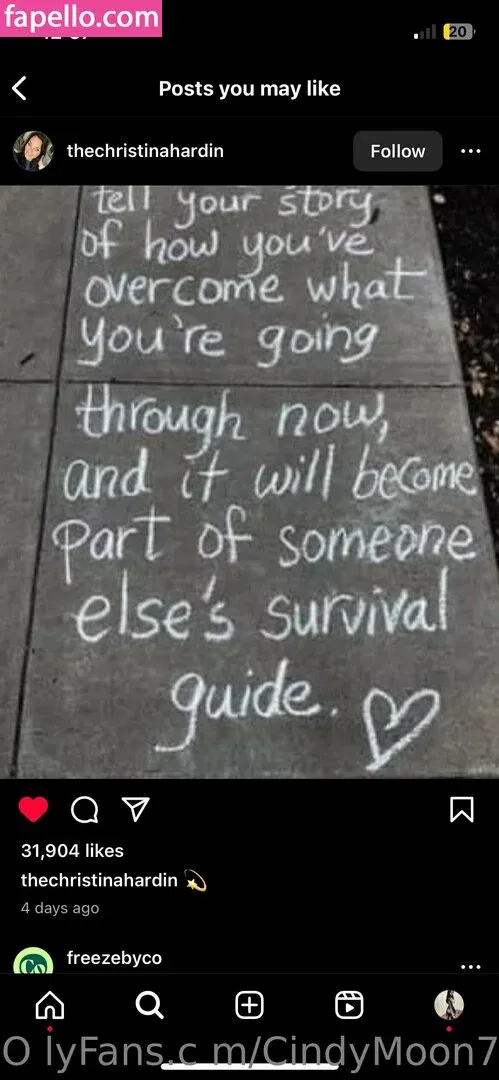 fapello.com
20
Posts you may like
thechristinahardin
Follow
tell your story
of how you've
overcome what
you're going
through now,
and it will become
part of someone
else's survival
guide.
31,904 likes
thechristinahardin
4 days ago
freezebyco
Co
O lyFans.c m/CindyMoon7